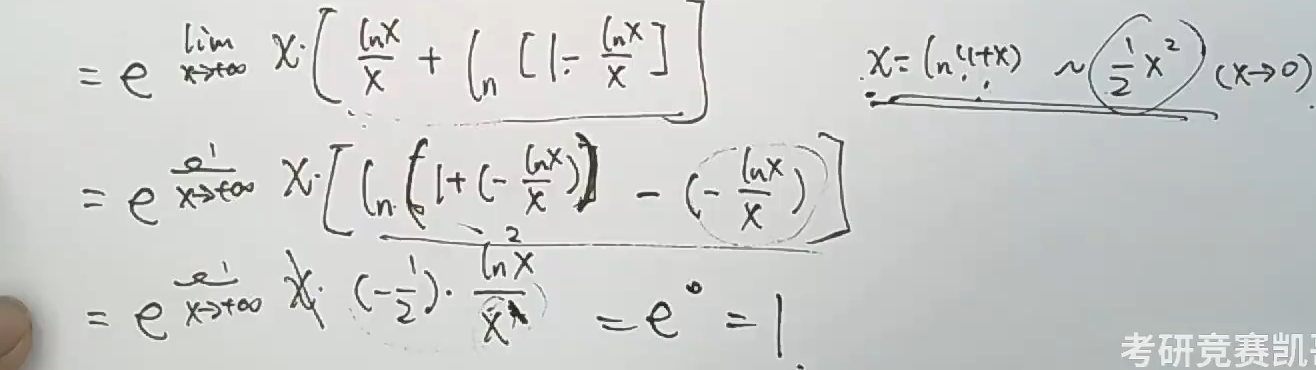 = e^{lim_{x→+∞} x·[lnx/x + ln[1-lnx/x]]}
x-ln(1+x) ~ 1/2 x² (x→0)
= e^{lim_{x→+∞} x·[ln[1+(-lnx/x)] - (-lnx/x)]}
= e^{lim_{x→+∞} x·(-1/2)·ln²x/x²} = e⁰ = 1.
考研竞赛凯哥